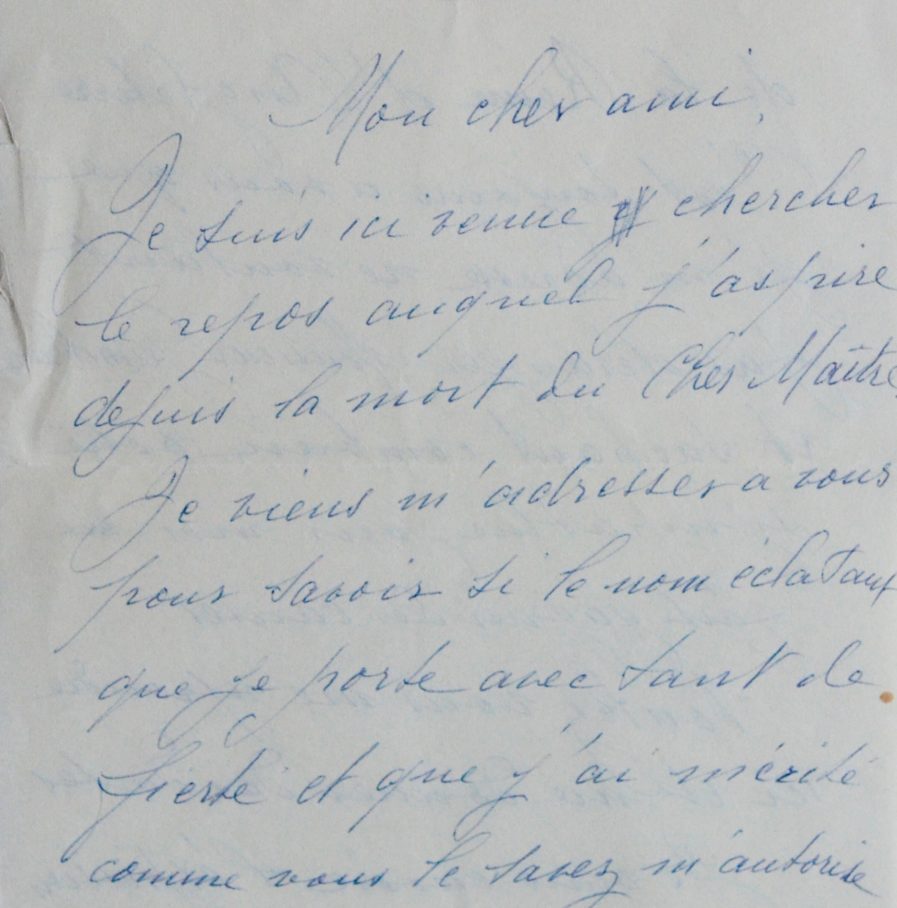 Mon cher ami,
Je suis ici venue chercher
le repos auquel j'aspire
depuis la mort du Cher Maître
Je viens m'adresser a vous
pour savoir si le nom éclatant
que je porte avec tant de
fierté et que j'ai mérité
comme vous le savez m'autorise